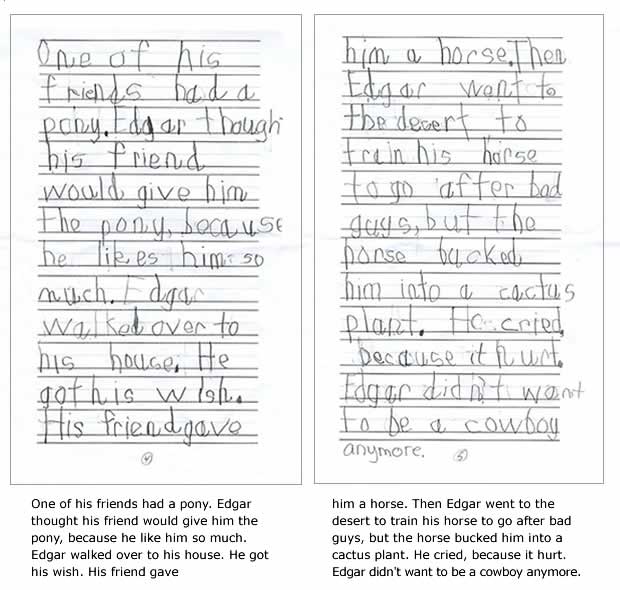 One of his
friends had a
pony. Edgar though
his friend
would give him
the pony, because
he likes him so
much. Edgar
walked over to
his house. He
got his wish.
His friend gave
4
One of his friends had a pony. Edgar
thought his friend would give him the
pony, because he like him so much.
Edgar walked over to his house. He got
his wish. His friend gave
him a horse. Then
Edgar went to
the desert to
train his horse
to go after bad
guys, but the
horse bucked
him into a cactus
plant. He cried,
because it hurt.
Edgar didn't want
to be a cowboy
anymore.
5
him a horse. Then Edgar went to the
desert to train his horse to go after bad
guys, but the horse bucked him into a
cactus plant. He cried, because it hurt.
Edgar didn't want to be a cowboy anymore.